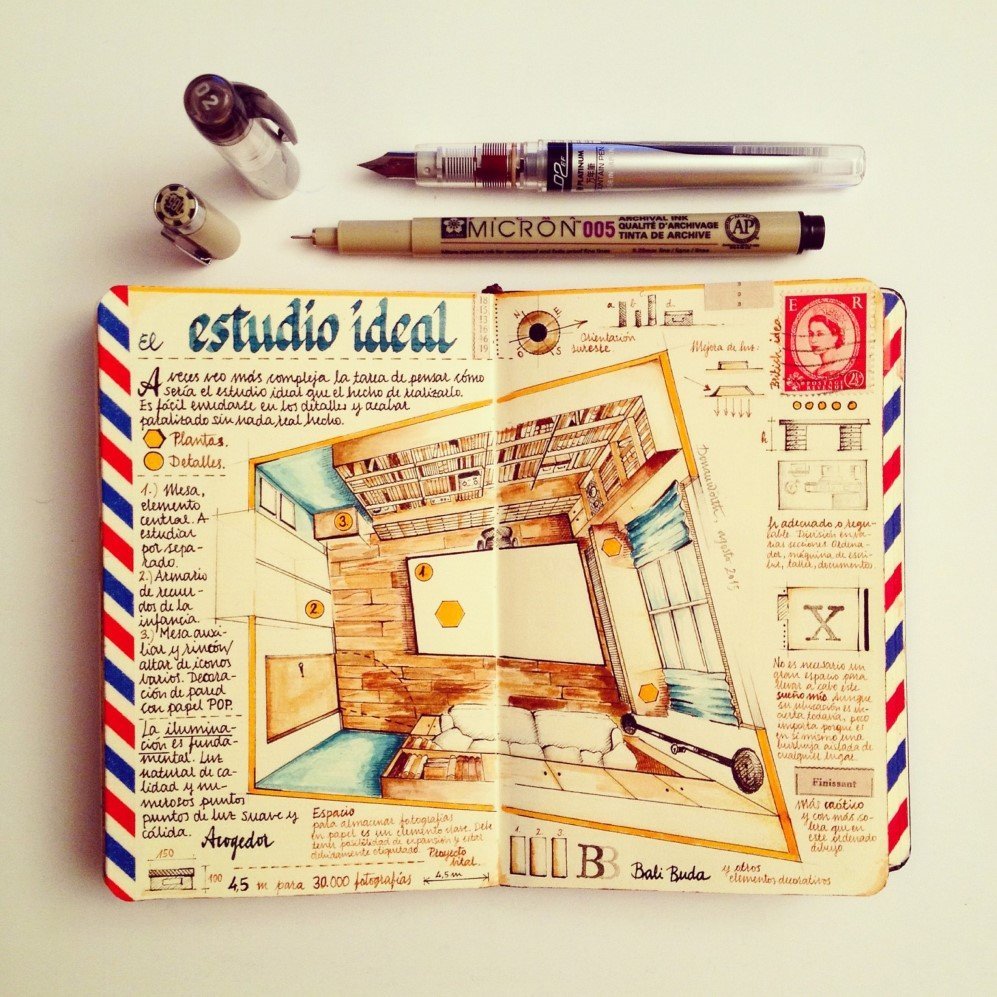 02
02 EF
PLATINUM
FOUNTAIN PEN
MICRON™ 005
ARCHIVAL INK
QUALITÉ D'ARCHIVAGE
TINTA DE ARCHIVE
AP
El estudio ideal
18
15
13
16
16
19
A veces veo más compleja la tarea de pensar cómo
sería el estudio ideal que el hecho de realizarlo.
Es fácil enredarse en los detalles y acabar
paralizado sin nada real hecho.
Plantas.
Detalles.
1.) Mesa,
elemento
central. A
estudiar
por sepa-
rado.
2.) Armario
de recuer-
dos de la
infancia.
3.) Mesa auxi-
liar y rincón/
altar de iconos
varios. Decora-
ción de pared
con papel POP.
La ilumina-
ción es funda-
mental. Luz
natural de ca-
lidad y nu-
merosos puntos
puntos de luz suave y
cálida.
Acogedor
150
100
Espacio
para almacenar fotografías
en papel es un elemento clave. Debe
tener posibilidad de expansión y estar
debidamente etiquetado.
Proyecto
vital.
45 m para 30.000 fotografías
4,5 m
3.
2
1
O
S
a
b
c
d.
Orientación
sureste
Mejora de luz:
British idea
E R
POSTAGE
REVENUE
2½
h
agosto 2015
h adecuado o regu-
lable. División en va-
rias secciones. Ordena-
dor, máquina de escri-
bir, taller, documentos.
X
No es necesario un
gran espacio para
llevar a cabo este
sueño mío. Aunque
su ubicación es in-
cierta todavía, poco
importa porque es
en sí mismo una
burbuja aislada de
cualquier lugar.
Finissant
Más caótico
y con más so-
lera que en
este ordenado
dibujo.
1
2
3.
BB
Bali Buda
y otros
elementos decorativos